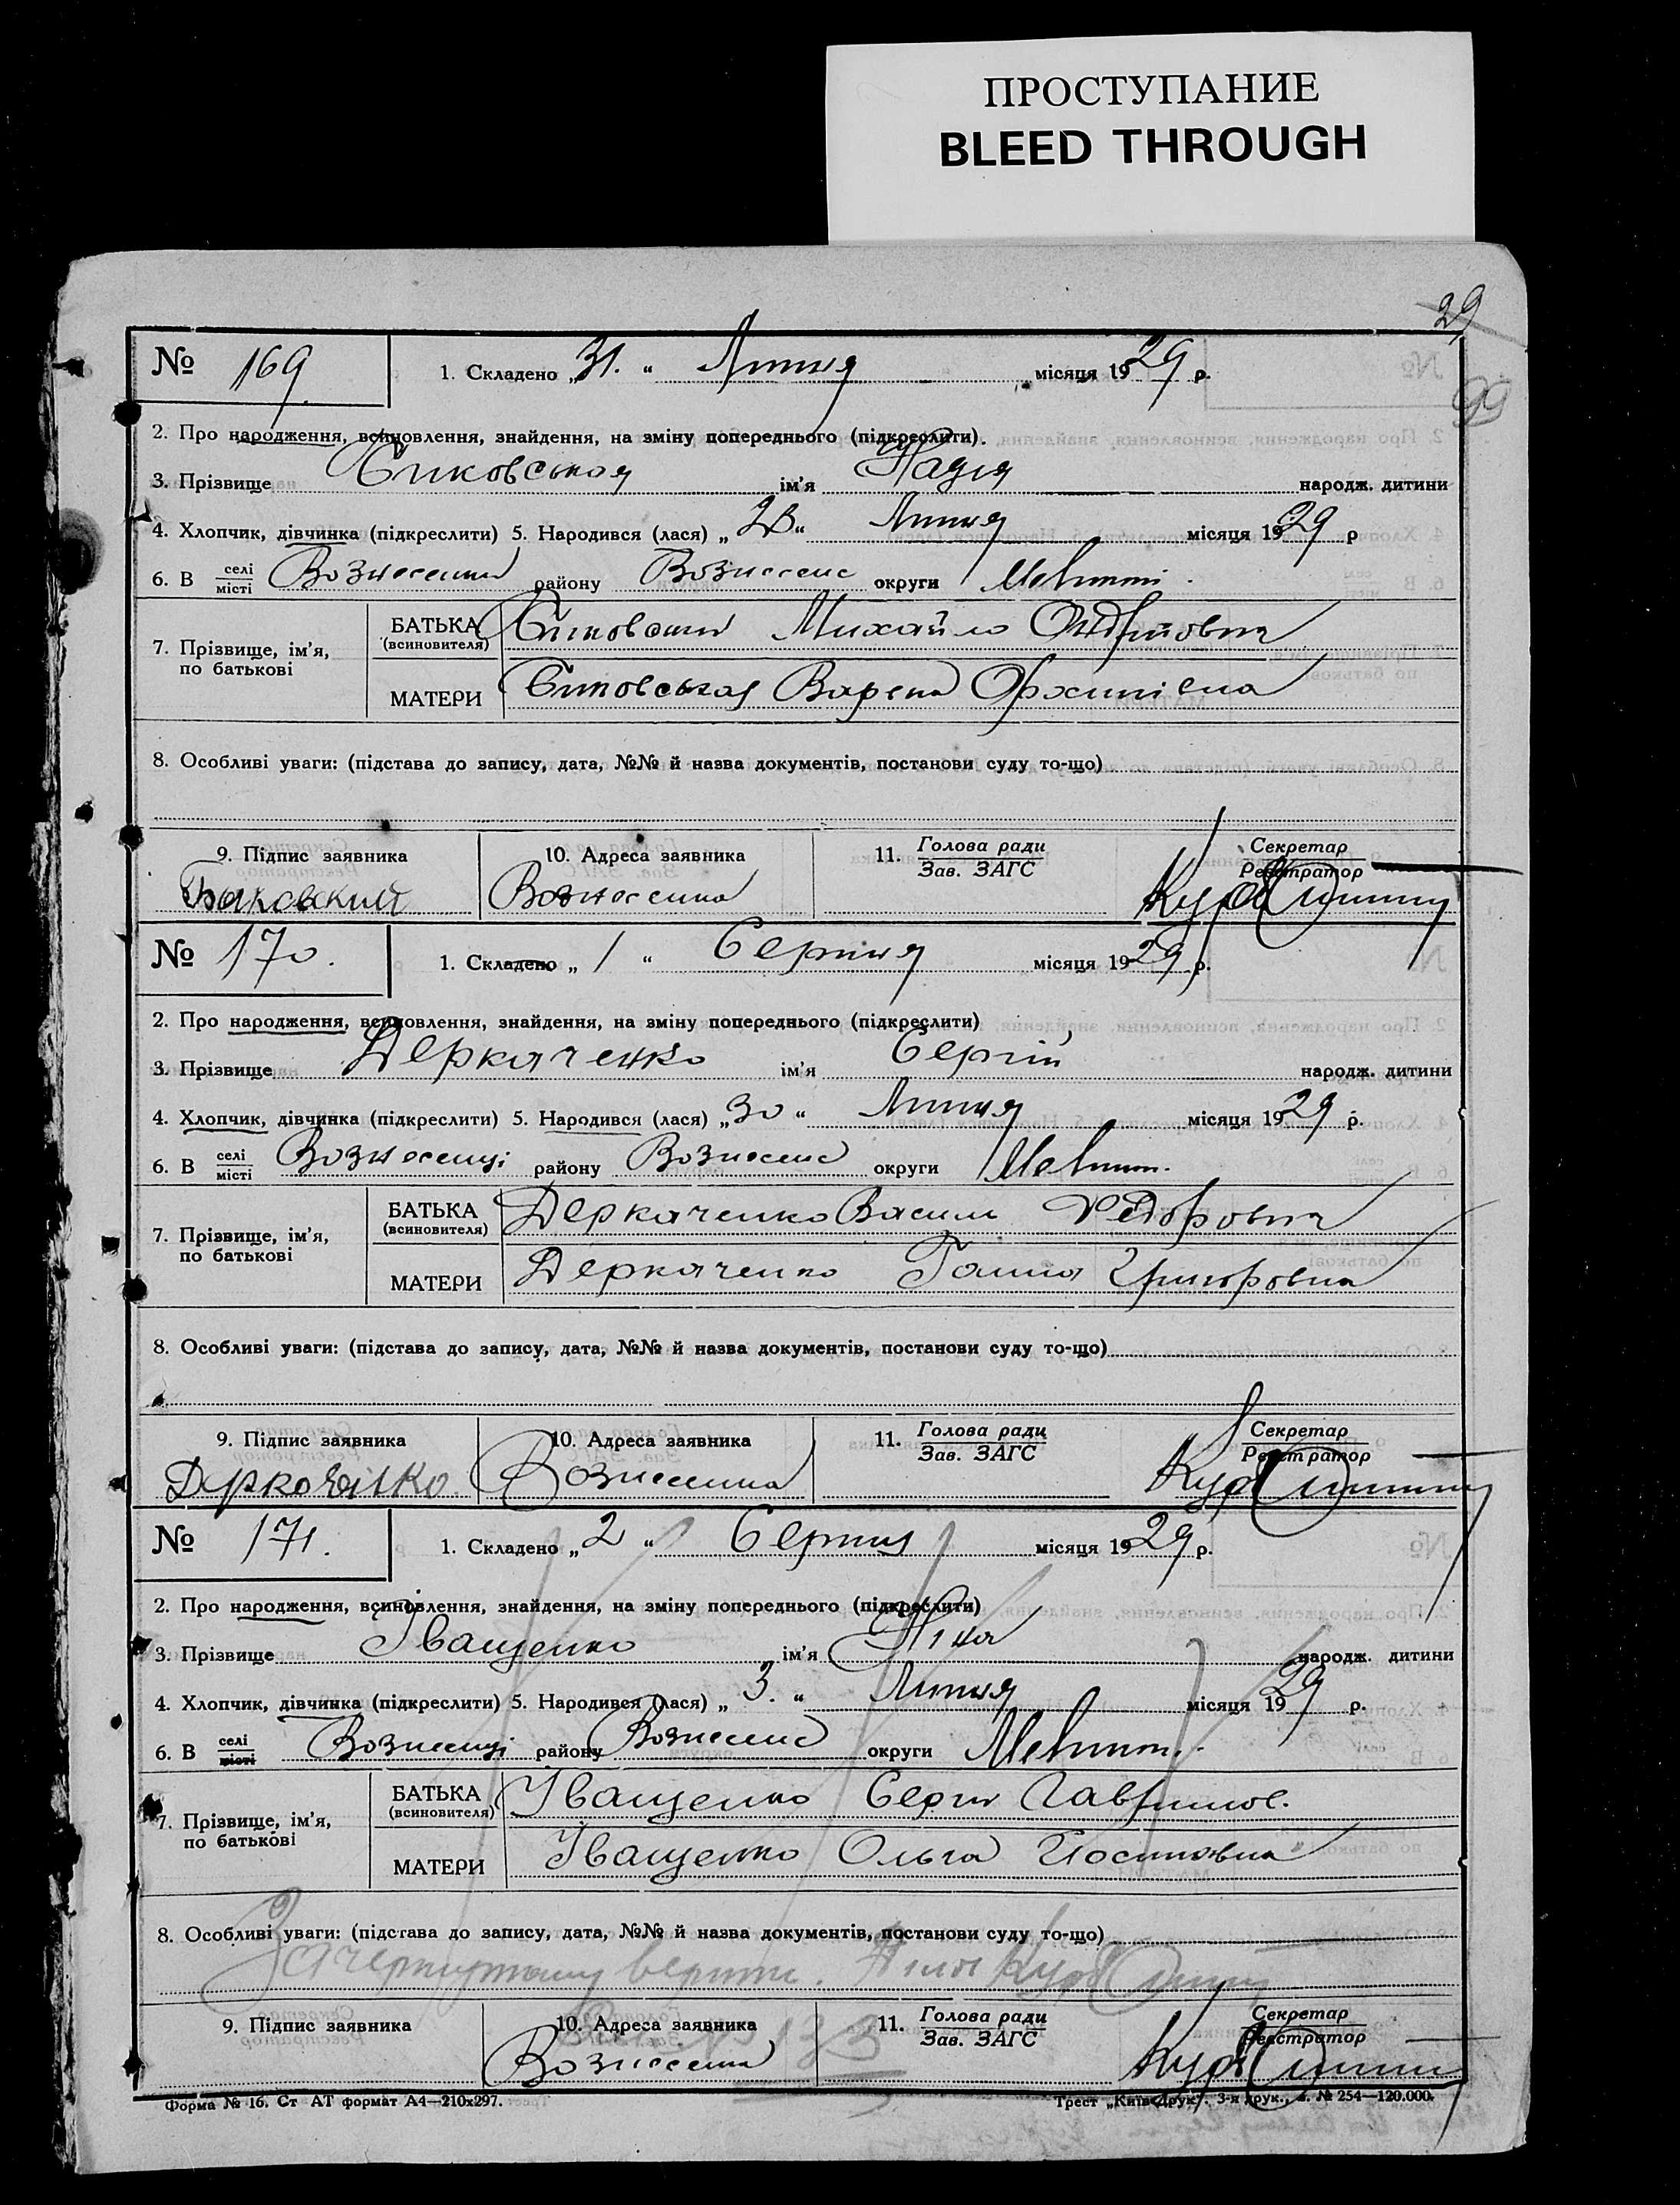 ПРОСТУПАНИЕ
BLEED THROUGH
29
99
№ 169 1. Складено „31.“ Липня місяця 1929 р.
2. Про народження, всиновлення, знайдення, на зміну попереднього (підкреслити).
3. Прізвище ім'я Надія народж. дитини
4. Хлопчик, дівчинка (підкреслити) 5. Народився (лася) „ “ Липня місяця 1929 р
6. В селі/місті району Вознесенс округи Меліт.
7. Прізвище, ім'я, по батькові
БАТЬКА (всиновителя) Михайло
МАТЕРИ
8. Особливі уваги: (підстава до запису, дата, №№ й назва документів, постанови суду то-що)
9. Підпис заявника 10. Адреса заявника 11. Голова ради/Зав. ЗАГС Секретар/Реєстратор
Вознесенка
№ 170. 1. Складено „1“ Серпня місяця 1929 р.
2. Про народження, всиновлення, знайдення, на зміну попереднього (підкреслити)
3. Прізвище Деркаченко ім'я Сергій народж. дитини
4. Хлопчик, дівчинка (підкреслити) 5. Народився (лася) „30“ Липня місяця 1929 р.
6. В селі/місті Вознесенці району Вознесенс округи Меліт.
7. Прізвище, ім'я, по батькові
БАТЬКА (всиновителя) Деркаченко Васили Федорович
МАТЕРИ Деркаченко Ганна Григоровна
8. Особливі уваги: (підстава до запису, дата, №№ й назва документів, постанови суду то-що)
9. Підпис заявника 10. Адреса заявника 11. Голова ради/Зав. ЗАГС Секретар/Реєстратор
Вознесенка
№ 171. 1. Складено „2“ Серпня місяця 1929 р.
2. Про народження, всиновлення, знайдення, на зміну попереднього (підкреслити)
3. Прізвище Іващенко ім'я Ніна народж. дитини
4. Хлопчик, дівчинка (підкреслити) 5. Народився (лася) „3.“ Липня місяця 1929 р.
6. В селі/місті Вознесенці району Вознесенс округи Меліт.
7. Прізвище, ім'я, по батькові
БАТЬКА (всиновителя) Іващенко Сергій Гаврилов.
МАТЕРИ Іващенко Ольга Йосиповна
8. Особливі уваги: (підстава до запису, дата, №№ й назва документів, постанови суду то-що)
9. Підпис заявника 10. Адреса заявника 11. Голова ради/Зав. ЗАГС Секретар/Реєстратор
Вознесенка
Форма № 16. Ст АТ формат А4—210х297. Трест „Київ-Друк“. 3-я друк., з. № 254—120.000.